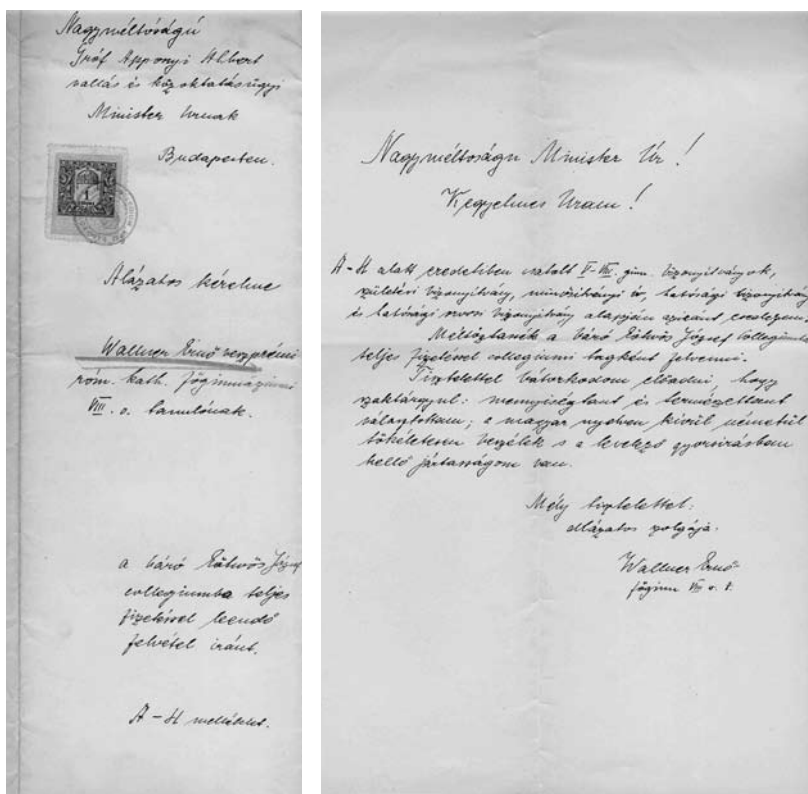 Nagyméltóságú
Gróf Apponyi Albert
vallás és közoktatásügyi
Minister Urnak
Budapesten.
1
Alázatos kérelme
Wallner Ernő veszprémi
róm. kath. főgimnáziumi
VIII. o. tanulónak.
a báró Eötvös József
collegiumba teljes
fizetéssel leendő
felvétel iránt.
A-H melléklet.
Nagyméltóságu Minister Úr!
Kegyelmes Uram!
A-H alatt eredetiben csatolt V-VIII. gim. bizonyitványok,
születési bizonyitvány, minősitványi ív, hatósági bizonyitvány
és hatósági orvosi bizonyitvány alapján aziránt esedezem:
Méltóztassék a báró Eötvös József Collegiumba
teljes fizetéssel collegiumi tagként felvenni.
Tisztelettel bátorkodom előadni, hogy
szaktárgyul: mennyiségtant és természettant
választottam; a magyar nyelven kívül németül
tökéletesen beszélek s a levelező gyorsirásban
kellő jártasságom van.
Mély tisztelettel:
alázatos szolgája:
Wallner Ernő
főgimn VIII o. t.